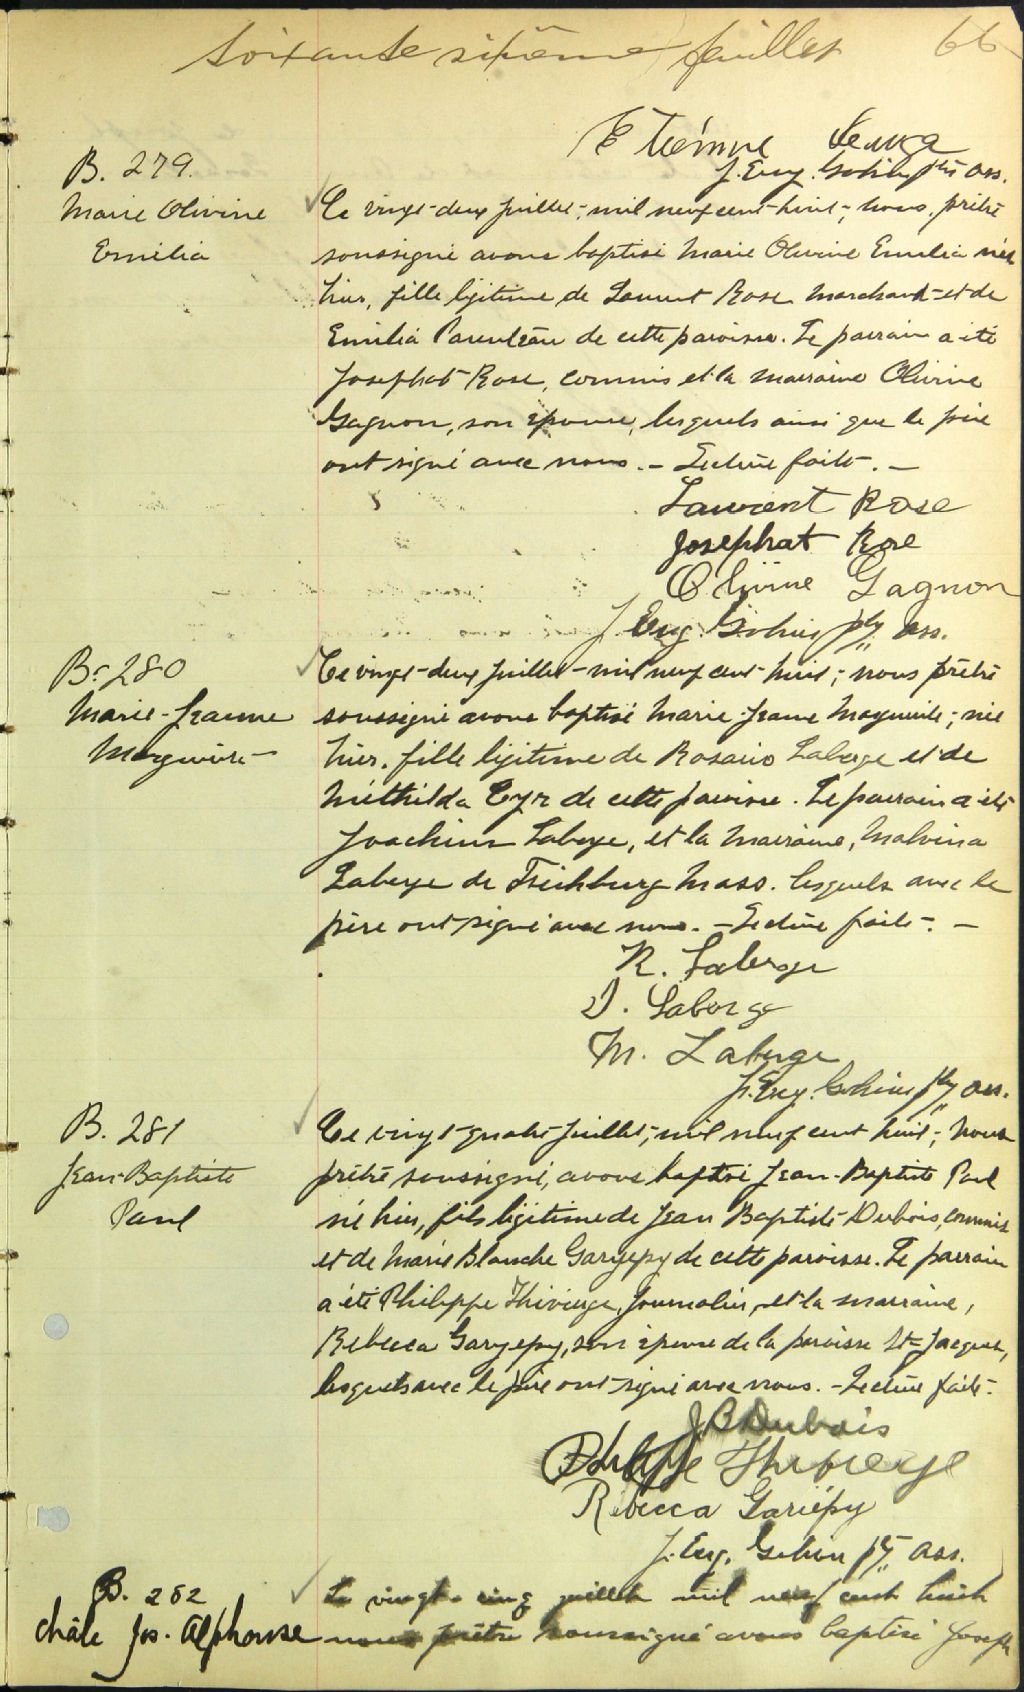 Soixante sixième feuillet 66
Etienne
J. Eug. ptre ass.
B. 279.
Marie Olivine
Emilia
Le vingt-deux juillet, mil neuf cent huit, nous, prêtre
soussigné avons baptisé Marie Olivine Emilia née
hier, fille légitime de Laurent Rose marchand et de
Emilia Parenteau de cette paroisse. Le parrain a été
Josephat Rose, commis et la marraine Olivine
Gagnon, son épouse, lesquels ainsi que le père
ont signé avec nous. - Lecture faite. -
Laurient Rose
Josephat Rose
Olivine Gagnon
J. Eug. ptre ass.
B. 280
Marie-Jeanne
Marguerite
Le vingt-deux juillet mil neuf cent huit, nous prêtre
soussigné avons baptisé Marie Jeanne Marguerite, née
hier, fille légitime de Rosario Laberge et de
Méthilda Cyr de cette paroisse. Le parrain a été
Joachim Laberge, et la marraine, Malvina
Laberge de Mass. lesquels avec le
père ont signé avec nous. - Lecture faite. -
R. Laberge
J. Laberge
M. Laberge
J. Eug. ptre ass.
B. 281
Jean-Baptiste
Paul
Le vingt-quatre juillet, mil neuf cent huit, nous
prêtre soussigné, avons baptisé Jean-Baptiste Paul
né hier, fils légitime de Jean Baptiste Dubois, commis
et de Marie Blanche Garyepy de cette paroisse. Le parrain
a été Philippe Thivierge, journalier, et la marraine,
Rebecca Garyepy, son épouse de la paroisse St-Jacques,
lesquels avec le père ont signé avec nous. - Lecture faite.
J B Dubois
Philippe Thivierge
Rebecca Gariépy
J. Eug. ptre ass.
B. 282
Châle Jos. Alphonse
Le vingt-cinq juillet mil neuf cent huit
nous prêtre soussigné avons baptisé Joseph